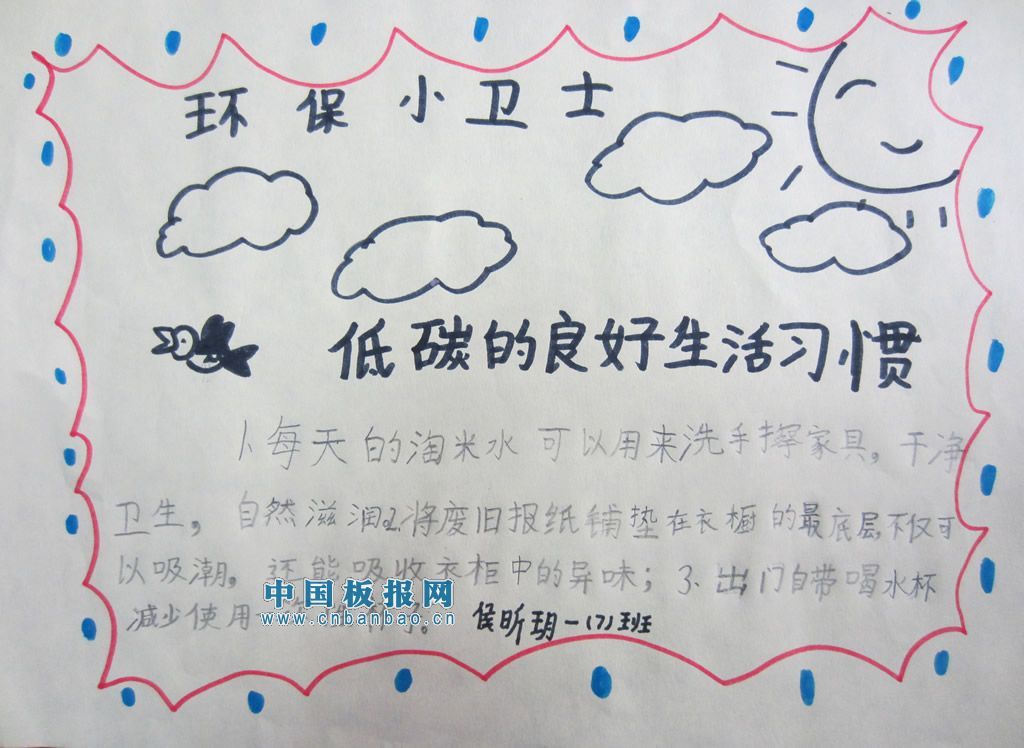 环保小卫士
低碳的良好生活习惯
1、每天的淘米水可以用来洗手擦家具，干净
卫生，自然滋润2、将废旧报纸铺垫在衣橱的最底层,不仅可
以吸潮，还能吸收衣柜中的异味；3、出门自带喝水杯
减少使用
中国板报网
www.cnbanbao.cn
侯昕玥一(7)班